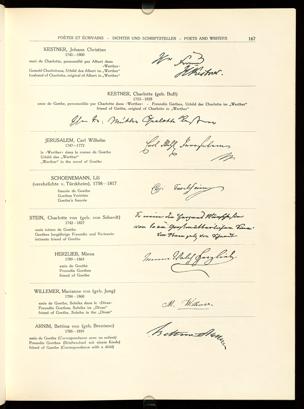 POÈTES ET ÉCRIVAINS - DICHTER UND SCHRIFTSTELLER - POETS AND WRITERS 167
KESTNER, Johann Christian
1741-1800
mari de Charlotte, personnifié par Albert dans
«Werther»
Gemahl Charlottens, Urbild des Albert in „Werther“
husband of Charlotte, original of Albert in „Werther“
KESTNER, Charlotte (geb. Buff)
1753-1828
amie de Goethe, personnifiée par Charlotte dans «Werther» - Freundin Goethes, Urbild der Charlotte im „Werther“
friend of Goethe, original of Charlotte in „Werther“
JERUSALEM, Carl Wilhelm
1747-1772
le «Werther» dans le roman de Goethe
Urbild des „Werther“
„Werther“ in the novel of Goethe
SCHOENEMANN, Lili
(verehelichte v. Türckheim), 1758-1817
fiancée de Goethe
Goethes Verlobte
Goethe's fiancée
STEIN, Charlotte von (geb. von Schardt)
1742-1827
amie intime de Goethe
Goethes langjährige Freundin und Vertraute
intimate friend of Goethe
HERZLIEB, Minna
1789-1865
amie de Goethe
Freundin Goethes
friend of Goethe
WILLEMER, Marianne von (geb. Jung)
1784-1860
amie de Goethe, Suleika dans le «Divan»
Freundin Goethes, Suleika im „Divan“
friend of Goethe, Suleika in the „Divan“
M. Willemer
ARNIM, Bettina von (geb. Brentano)
1785-1859
amie de Goethe (Correspondance avec un enfant)
Freundin Goethes (Briefwechsel mit einem Kinde)
friend of Goethe (Correspondence with a child)